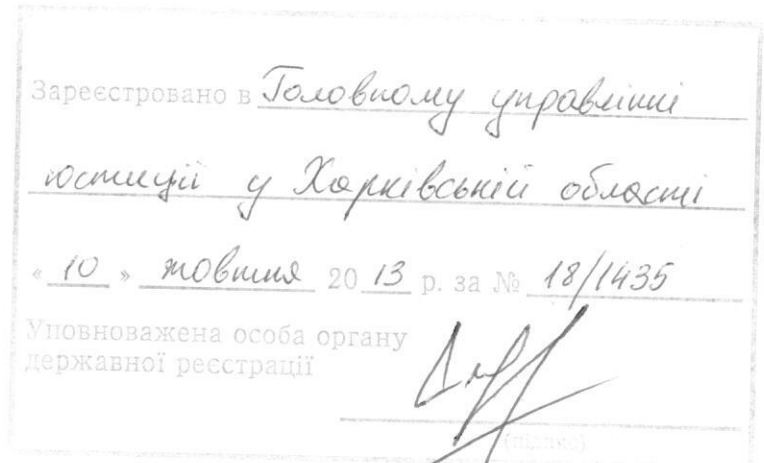 Зареєстровано в Головному управлінні
юстиції у Харківській області
« 10 » жовтня 20 13 р. за № 18/1435
Уповноважена особа органу
державної реєстрації
(підпис)